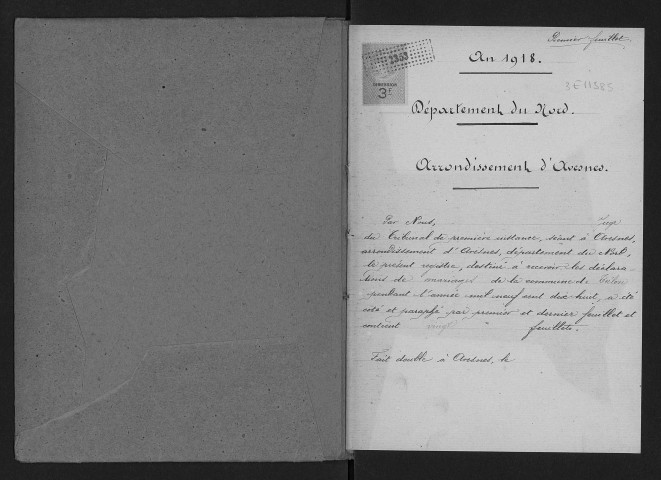 Premier feuillet.
An 1918.
3353
3F
3 E 11385
Département du Nord.
Arrondissement d'Avesnes.
Par Nous, Juge
du Tribunal de première instance, séant à Avesnes,
arrondissement d'Avesnes, département du Nord,
le présent registre, destiné à recevoir les déclara-
tions de mariages de la commune de
pendant l'année mil neuf cent dix-huit, a été
coté et paraphé par premier et dernier feuillet et
contient vingt feuillets.
Fait double à Avesnes, le